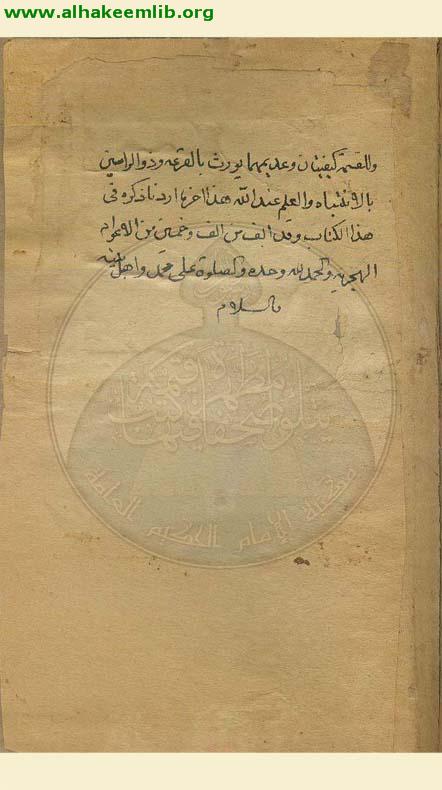 www.alhakeemlib.org
وللقسمة كيفيتان وعديمهما يورث بالقرعة وذو الراسين
بالانتباه والعلم عند الله هذا اخر ما اردنا ذكره في
هذا الكتاب وقد الف سن الف وخمسين من الاعوام
الهجرية والحمد لله وحده والصلوة على محمد واهل بيته
والسلام
مكتبة الإمام الحكيم العامة